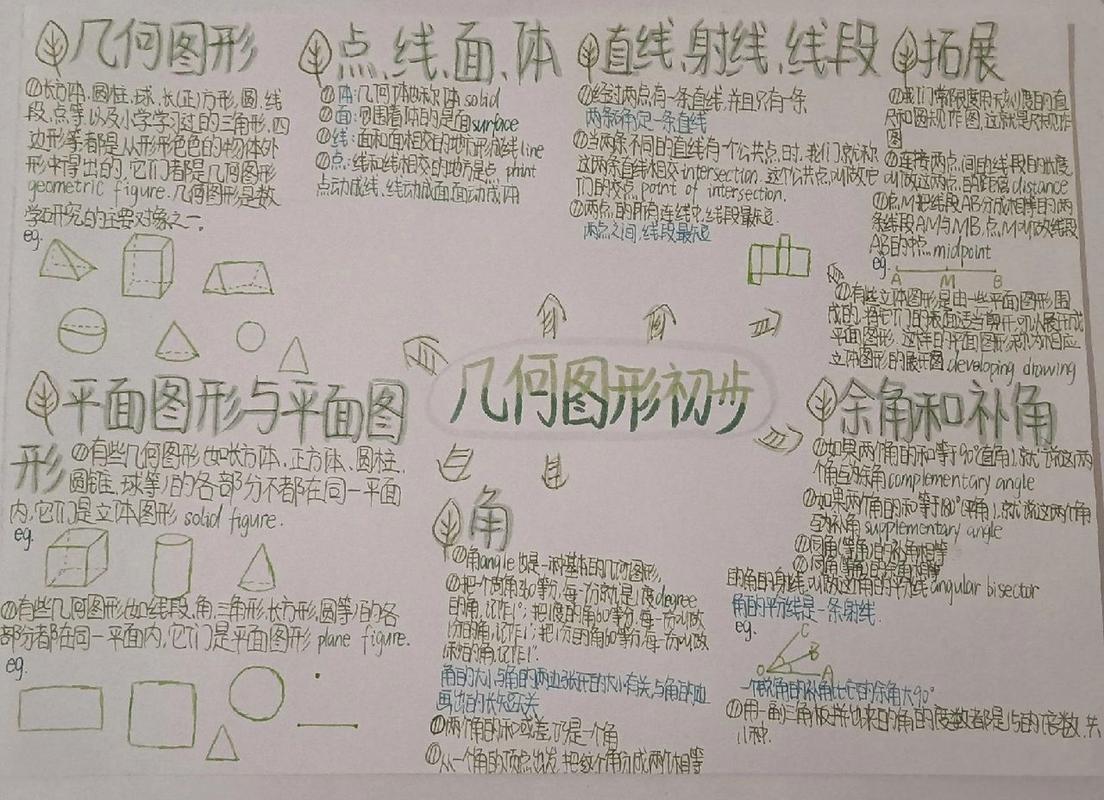 几何图形
①长方体、圆柱、球、长(正)方形、圆、线
段、点等,以及小学学习过的三角形、四
边形等都是从形形色色的物体外
形中得出的,它们都是几何图形
geometric figure.几何图形是数
学研究的主要对象之一。
eg.
点、线、面、体
①体:几何体也称体solid
②面:包围着体的是面surface
③线:面和面相交的地方形成线line
④点:线和线相交的地方是点 print
点动成线,线动成面,面动成体
直线、射线、线段
①经过两点有一条直线,并且只有一条
两点确定一条直线
②当两条不同的直线有一个公共点时,我们就称
这两条直线相交intersection,这个公共点叫做它
们的交点point of intersection.
③两点的所有连线中,线段最短.
两点之间,线段最短
拓展
①我们常限定用无刻度的直
尺和圆规作图,这就是尺规作
图
②连接两点间的线段的长度
叫做这两点的距离distance
③点M把线段AB分成相等的两
条线段AM与MB,点M叫做线段
AB的中点midpoint
eg.
A M B
④有些立体图形是由一些平面图形围
成的,将它们的表面适当剪开,可以展开成
平面图形,这样的平面图形称为相应
立体图形的展开图developing drawing
几何图形初步
平面图形与平面图
形
①有些几何图形(如长方体、正方体、圆柱、
圆锥、球等)的各部分不都在同一平面
内,它们是立体图形 solid figure.
eg.
②有些几何图形(如线段、角、三角形、长方形、圆等)的各
部分都在同一平面内,它们是平面图形 plane figure.
eg.
角
①角angle也是一种基本的几何图形,
②把一个周角360等分,每一份就是1度degree
的角,记作1°;把1度的角60等分,每一份叫做
1分的角,记作1′;把1分的角60等分,每一份叫做
1秒的角,记作1″.
角的大小与角的两边张开的大小有关,与角的边
画出的长短无关
③两个角的和或差,仍是一个角
④从一个角的顶点出发,把这个角分成两个相等
余角和补角
①如果两个角的和等于90°(直角),就说这两
个角互为余角complementary angle
②如果两个角的和等于180°(平角),就说这两个角
互为补角supplementary angle
③同角(等角)的补角相等
④同角(等角)的余角相等
的角的射线,叫做这个角的平分线angular bisector
角的平分线是一条射线.
eg.
C
B
O A
一个锐角的补角比它的余角大90°
⑤用一副三角板拼出来的角的度数都是15的倍数,共
11种.